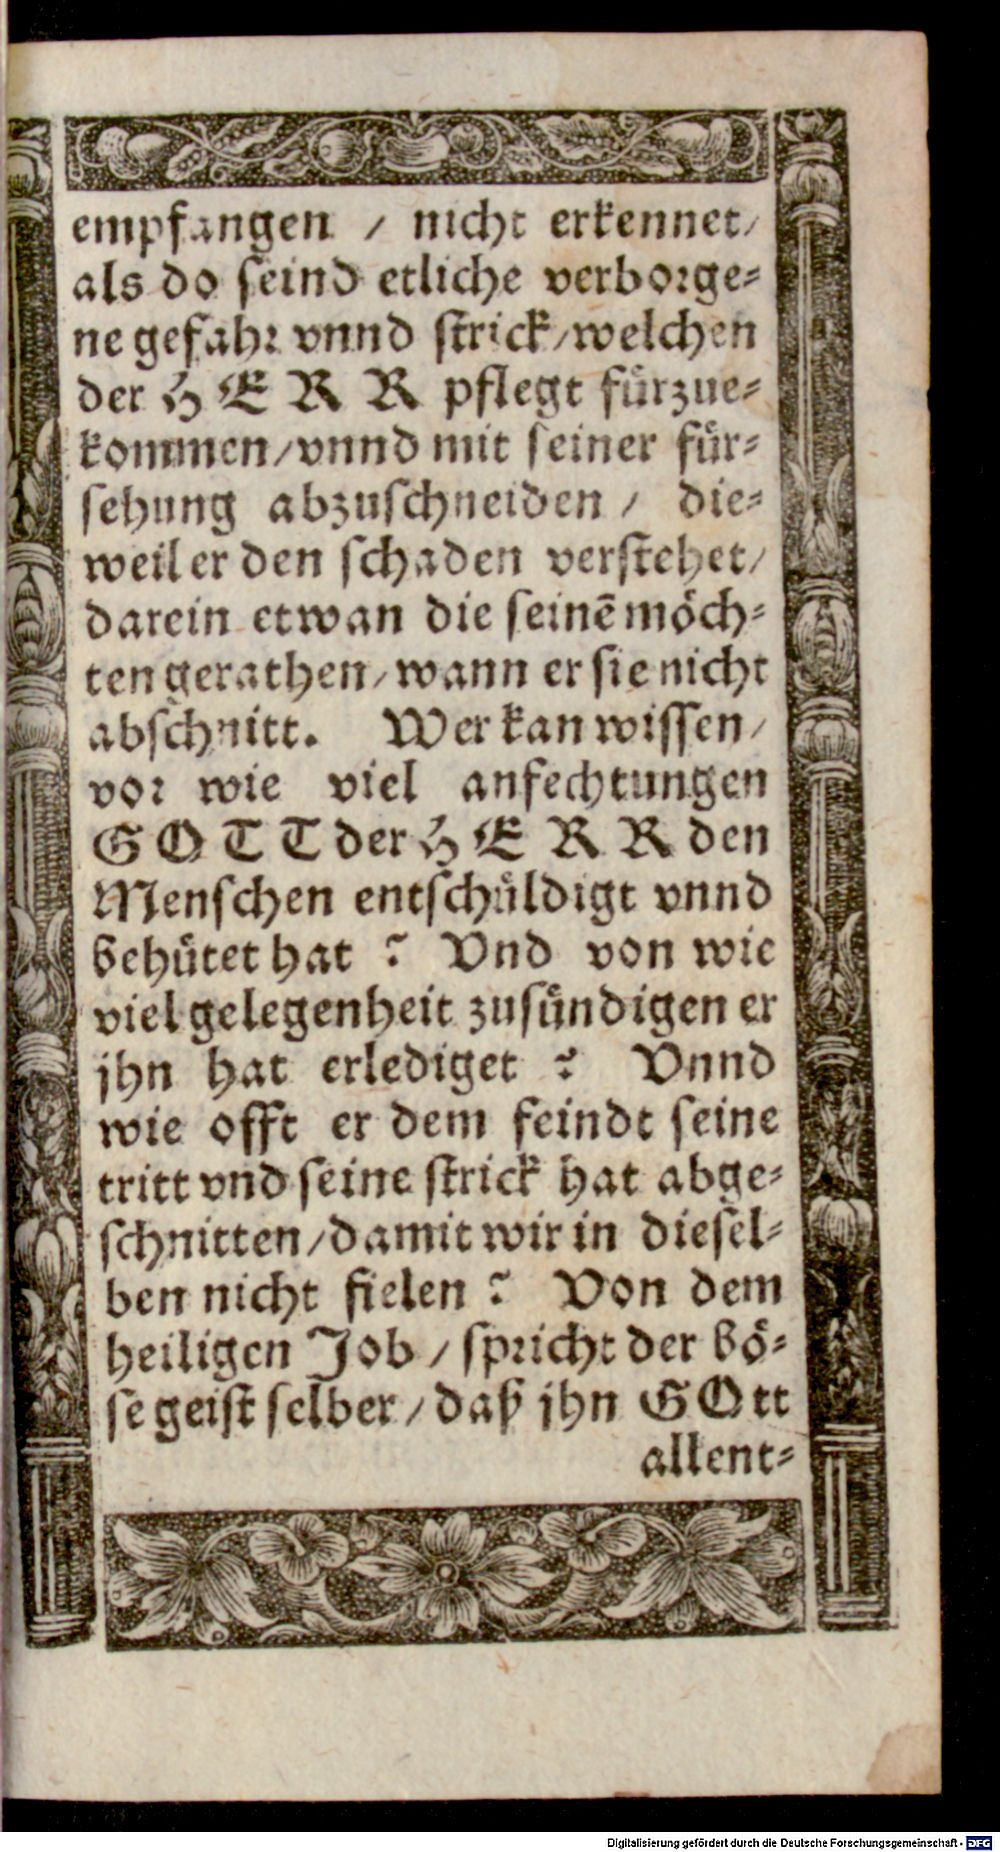 empfangen / nicht erkennet/
als do seind etliche verborge-
ne gefahr vnnd strick/welchen
der HERR pflegt fürzue-
kommen/vnnd mit seiner für-
sehung abzuschneiden / die-
weil er den schaden verstehet/
darein etwan die seinē möch-
ten gerathen/wann er sie nicht
abschnitt. Wer kan wissen/
vor wie viel anfechtungen
GOTT der HERR den
Menschen entschüldigt vnnd
behütet hat ? Vnd von wie
viel gelegenheit zusündigen er
jhn hat erlediget ? Vnnd
wie offt er dem feindt seine
tritt vnd seine strick hat abge-
schnitten/damit wir in diesel-
ben nicht fielen ? Von dem
heiligen Job / spricht der bö-
se geist selber/daß jhn GOtt
allent-
Digitalisierung gefördert durch die Deutsche Forschungsgemeinschaft - DFG